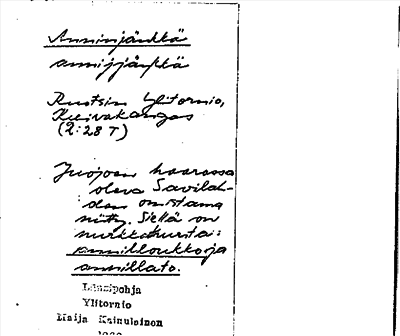 Anninjänkkä
annijjäŋkkä
Ruotsin Ylitornio,
Kuivakangas
(2:28 T)
Juojoen haarassa
oleva Savilah-
den omistama
niitty. Siellä on
nurkkakunta:
annilloukko ja
annillato.
Länsipohja
Ylitornio
Maija Kainulainen